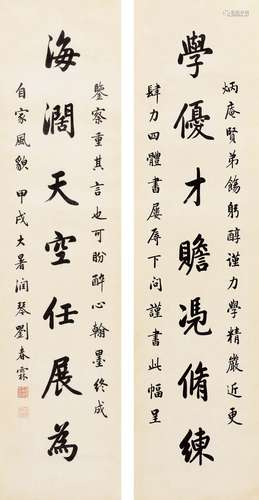 炳庵賢弟飭躬醇謹力學精嚴近更
學優才贍馮脩練
肆力四體書屢辱下问謹書此幅呈
鑒察重其言也可盼醉心翰墨終成
海濶天空任展為
自家風貌 甲戌大暑润琴劉春霖